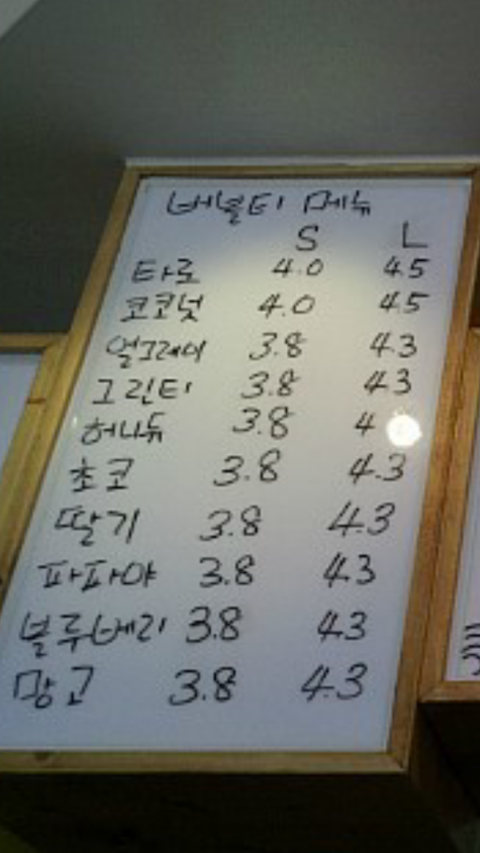 버블티 메뉴
S L
타로 4.0 4.5
코코넛 4.0 4.5
얼그레이 3.8 4.3
그린티 3.8 4.3
허니듀 3.8 4
초코 3.8 4.3
딸기 3.8 4.3
파파야 3.8 4.3
블루베리 3.8 4.3
망고 3.8 4.3